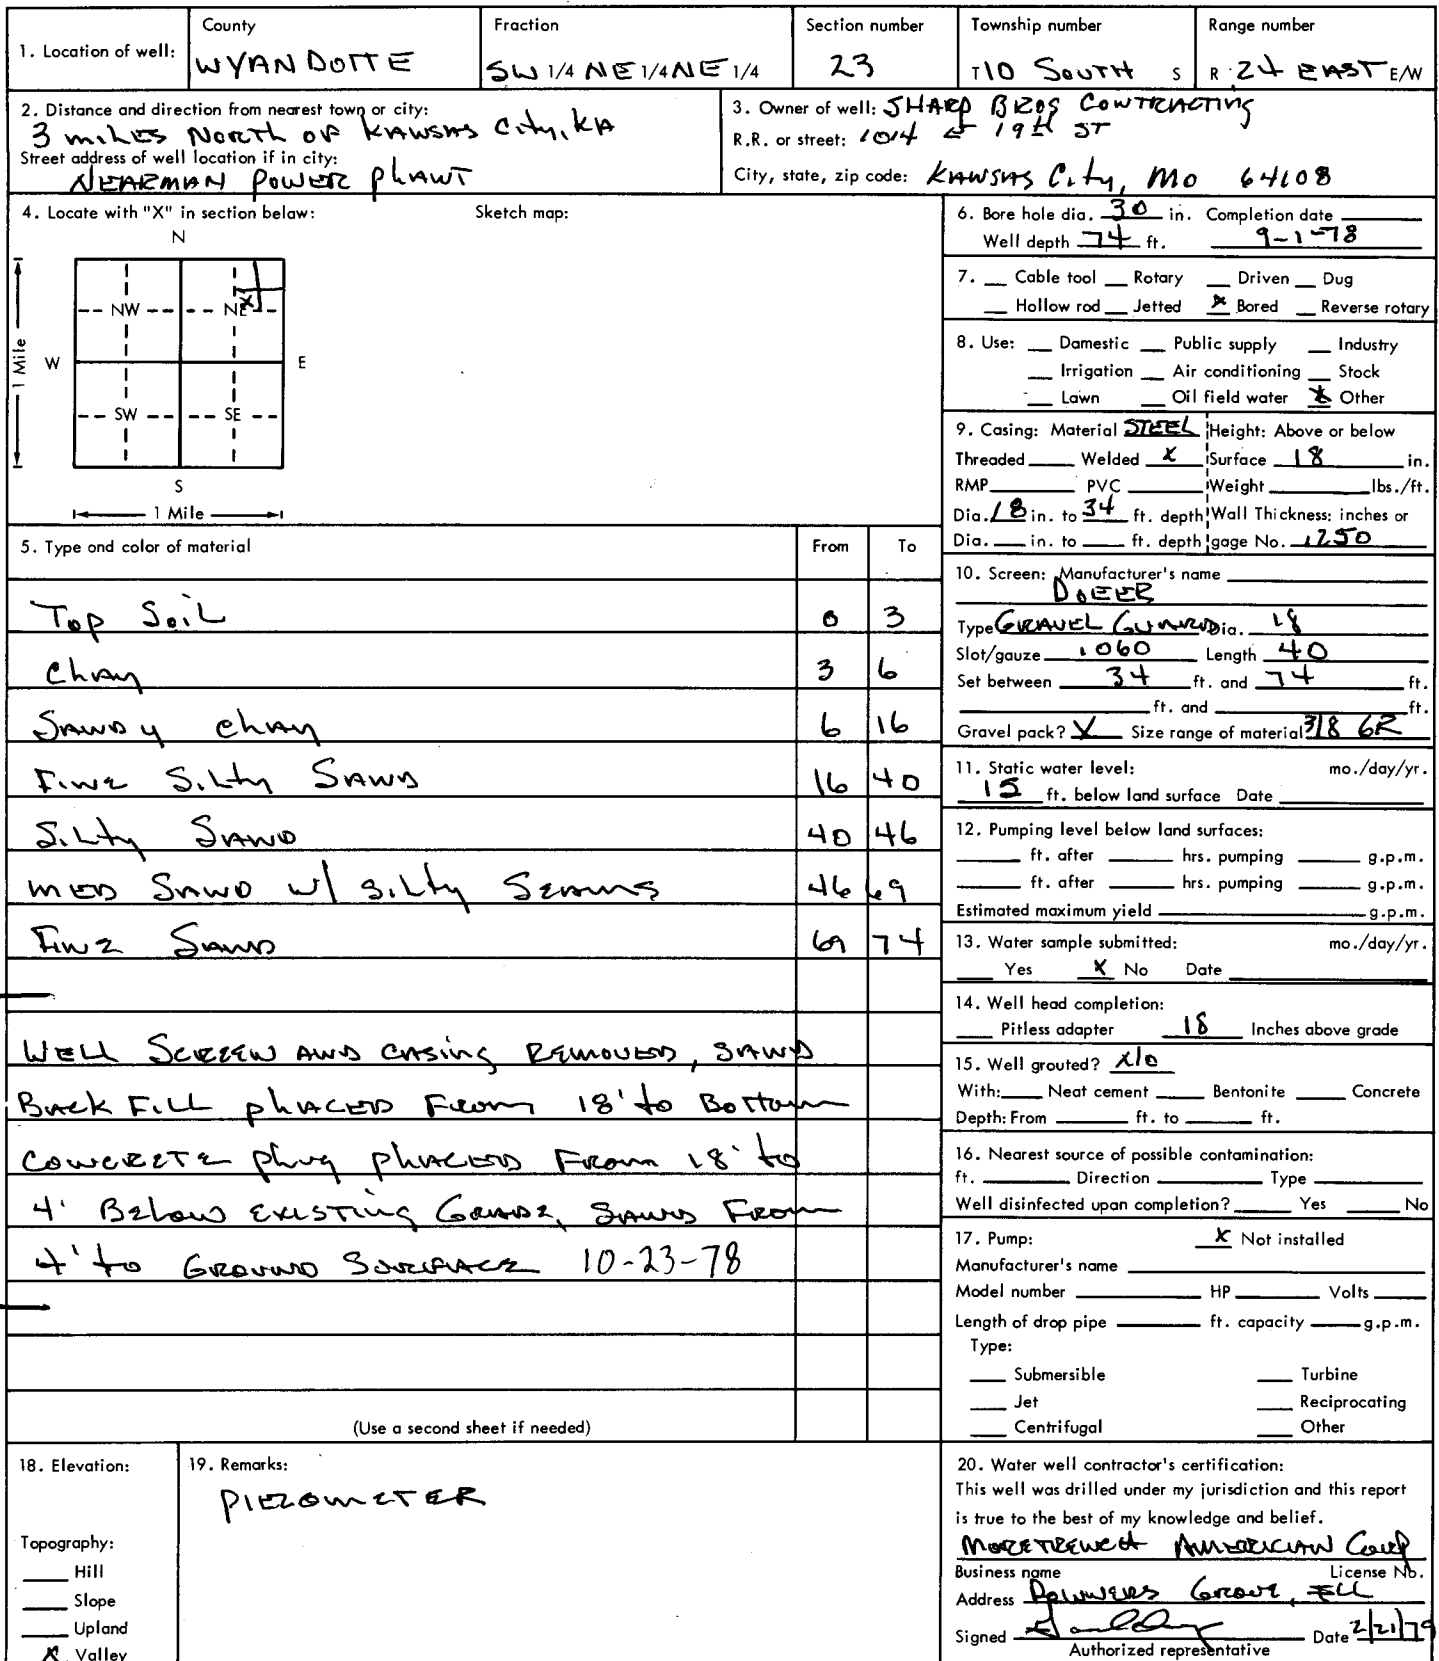 County Fraction Section number Township number Range number
1. Location of well: WYANDOTTE SW 1/4 NE 1/4 NE 1/4 23 T 10 SOUTH S R 24 EAST E/W
2. Distance and direction from nearest town or city:
3 miles NORTH OF KANSAS City, KA
Street address of well location if in city:
NEARMAN POWER PLANT
3. Owner of well: SHARP BROS CONTRACTING
R.R. or street: 1014 E 19th ST
City, state, zip code: KANSAS City, MO 64108
4. Locate with "X" in section belaw: Sketch map:
N
NW NE
X
W E
1 Mile
SW SE
S
1 Mile
5. Type and color of material From To
Top Soil 0 3
Clay 3 6
Sandy Clay 6 16
Fine Silty Sand 16 40
Silty Sand 40 46
MED SAND w/ silty Seams 46 69
Fine Sand 69 74
WELL SCREEN AND CASING REMOVED, SAND
BACK FILL PLACED From 18' to Bottom
CONCRETE Plug PLACED From 18' to
4' Below EXISTING GRADE, SAND From
4' to GROUND SURFACE 10-23-78
(Use a second sheet if needed)
6. Bore hole dia. 30 in. Completion date
Well depth 74 ft. 9-1-78
7. Cable tool Rotary Driven Dug
Hollow rod Jetted X Bored Reverse rotary
8. Use: Domestic Public supply Industry
Irrigation Air conditioning Stock
Lawn Oil field water X Other
9. Casing: Material STEEL Height: Above or below
Threaded Welded X Surface 18 in.
RMP PVC Weight lbs./ft.
Dia. 18 in. to 34 ft. depth Wall Thickness: inches or
Dia. in. to ft. depth gage No. .250
10. Screen: Manufacturer's name
DOEER
Type GRAVEL GUARD Dia. 18
Slot/gauze .060 Length 40
Set between 34 ft. and 74 ft.
ft. and ft.
Gravel pack? X Size range of material 3/8 GR
11. Static water level: mo./day/yr.
15 ft. below land surface Date
12. Pumping level below land surfaces:
ft. after hrs. pumping g.p.m.
ft. after hrs. pumping g.p.m.
Estimated maximum yield g.p.m.
13. Water sample submitted: mo./day/yr.
Yes X No Date
14. Well head completion:
Pitless adapter 18 Inches above grade
15. Well grouted? No
With: Neat cement Bentonite Concrete
Depth: From ft. to ft.
16. Nearest source of possible contamination:
ft. Direction Type
Well disinfected upon completion? Yes No
17. Pump: X Not installed
Manufacturer's name
Model number HP Volts
Length of drop pipe ft. capacity g.p.m.
Type:
Submersible Turbine
Jet Reciprocating
Centrifugal Other
18. Elevation:
Topography:
Hill
Slope
Upland
X Valley
19. Remarks:
PIEZOMETER
20. Water well contractor's certification:
This well was drilled under my jurisdiction and this report
is true to the best of my knowledge and belief.
MORETRENCH AMERICAN Corp
Business name License No.
Address Downers Grove, ILL
Signed Date 2/21/79
Authorized representative